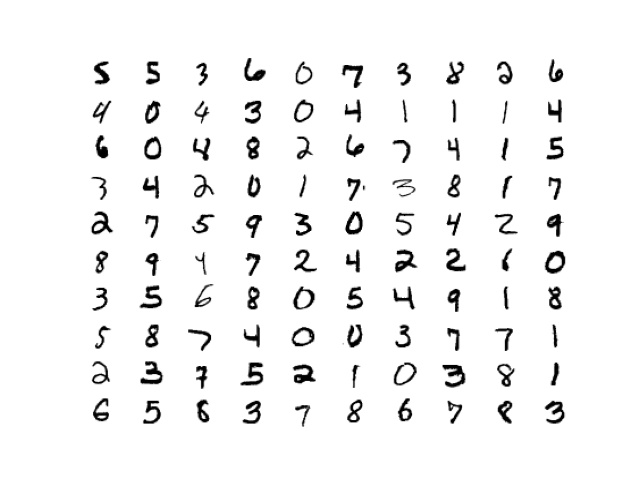 5 5 3 6 0 7 3 8 2 6
4 0 4 3 0 4 1 1 1 4
6 0 4 8 2 6 7 4 1 5
3 4 2 0 1 7 3 8 1 7
2 7 5 9 3 0 5 4 2 9
8 9 4 7 2 4 2 2 1 0
3 5 6 8 0 5 4 9 1 8
5 8 7 4 0 0 3 7 7 1
2 3 7 5 2 1 0 3 8 1
6 5 8 3 7 8 6 7 8 3